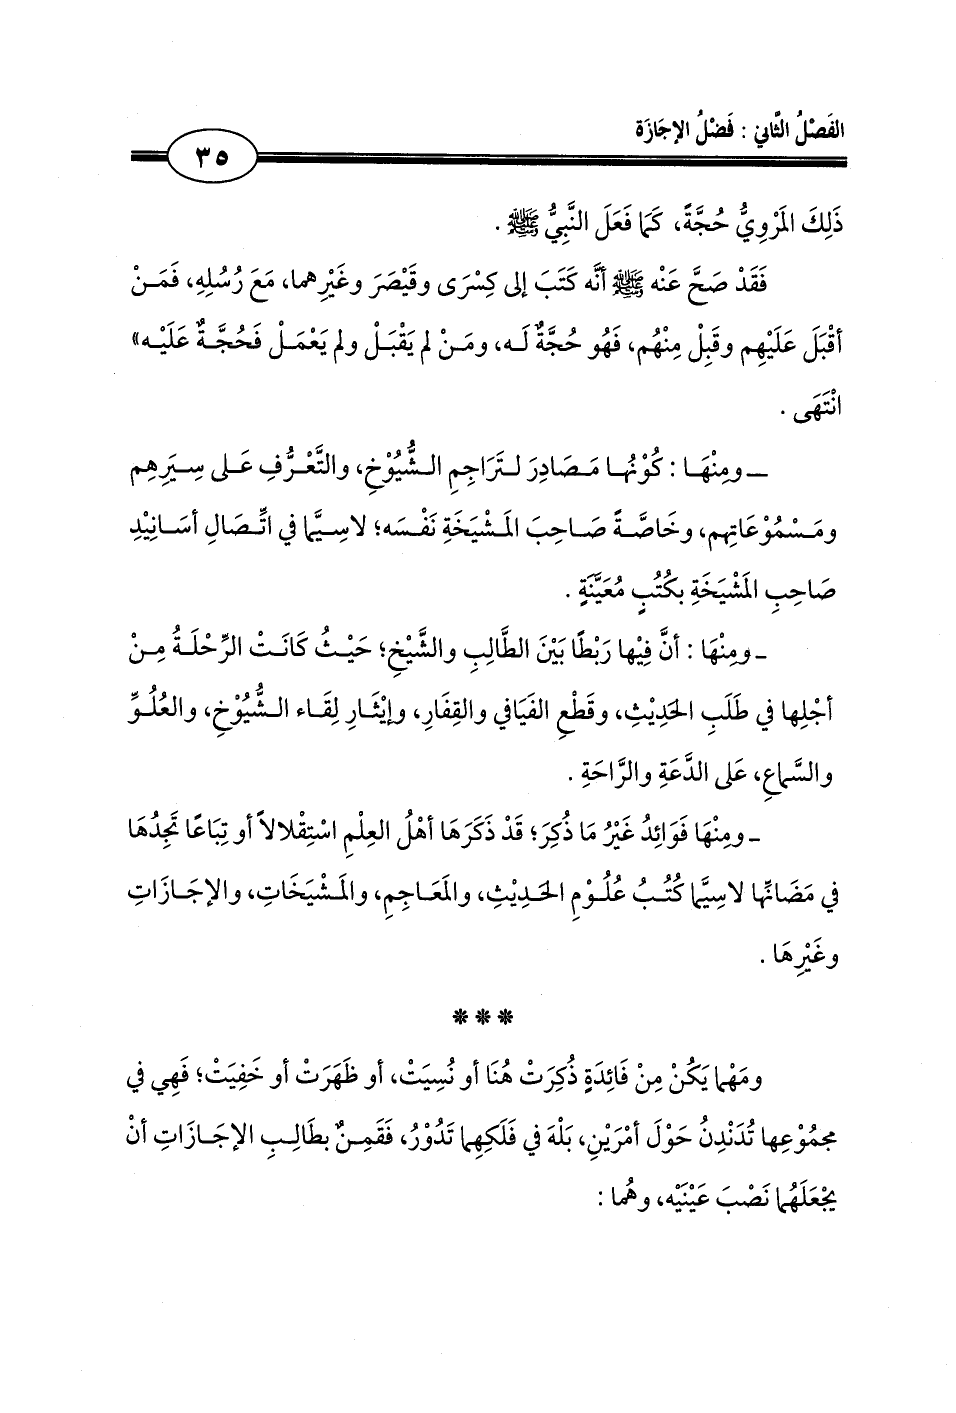 الفَصْلُ الثَّاني : فَضْلُ الإجَازَة
٣٥
ذَلِكَ المَرْوِيُّ حُجَّةً، كَمَا فَعَلَ النَّبِيُّ ﷺ .
فَقَدْ صَحَّ عَنْه ﷺ أنَّه كَتَبَ إلى كِسْرَى وقَيْصَرَ وغَيْرِهما، مَعَ رُسُلِهِ، فَمَنْ
أقْبَلَ عَلَيْهِم وقَبِلَ مِنْهُم، فَهُو حُجَّةٌ لَه، ومَنْ لم يَقْبَلْ ولم يَعْمَلْ فَحُجَّةٌ عَلَيْه»
انْتَهَى .
ـ ومِنْهَا : كُوْنُها مَصَادِرَ لتَرَاجِمِ الشُّيُوْخِ، والتَّعْرُّفِ عَلى سِيَرِهِم
ومَسْمُوْعَاتِهم، وخَاصَّةً صَاحِبَ المَشْيَخَةِ نَفْسَه؛ لاسِيَّما في اتِّصَالِ أسَانِيْدِ
صَاحِبِ المَشْيَخَةِ بكُتُبٍ مُعَيَّنَةٍ .
ـ ومِنْهَا : أنَّ فِيْها رَبْطًا بَيْنَ الطَّالِبِ والشَّيْخِ؛ حَيْثُ كَانَتْ الرِّحْلَةُ مِنْ
أجْلِها في طَلَبِ الحَدِيْثِ، وقَطْعِ الفَيَافي والقِفَارِ، وإيْثَارِ لِقَاء الشُّيُوْخِ، والعُلُوِّ
والسَّماعِ، عَلى الدَّعَةِ والرَّاحَةِ .
ـ ومِنْهَا فَوَائِدُ غَيْرُ مَا ذُكِرَ؛ قَدْ ذَكَرَهَا أهْلُ العِلْمِ اسْتِقْلالاً أو تِبَاعًا تَجِدُهَا
في مَضَانِّها لاسِيَّما كُتُبُ عُلُوْمِ الحَدِيْثِ، والمَعَاجِمِ، والمَشْيَخَاتِ، والإجَازَاتِ
وغَيْرِهَا .
* * *
ومَهْما يَكُنْ مِنْ فَائِدَةٍ ذُكِرَتْ هُنَا أو نُسِيَتْ، أو ظَهَرَتْ أو خَفِيَتْ؛ فَهِي في
مجمُوْعِها تُدَنْدِنُ حَوْلَ أمْرَيْنِ، بَلْهَ في فَلَكِهِما تَدُوْرُ، فَقَمِنٌ بطَالِبِ الإجَازَاتِ أنْ
يجْعَلَهُما نَصْبَ عَيْنَيْه، وهُما :